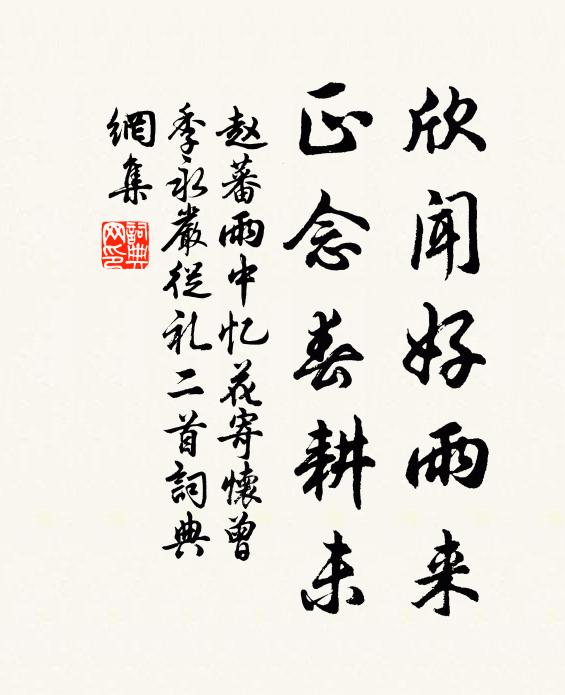 欣闻好雨来
正念春耕未
赵蕃雨中忆花寄怀曾
季永严从礼二首词典
网集
詞典网印